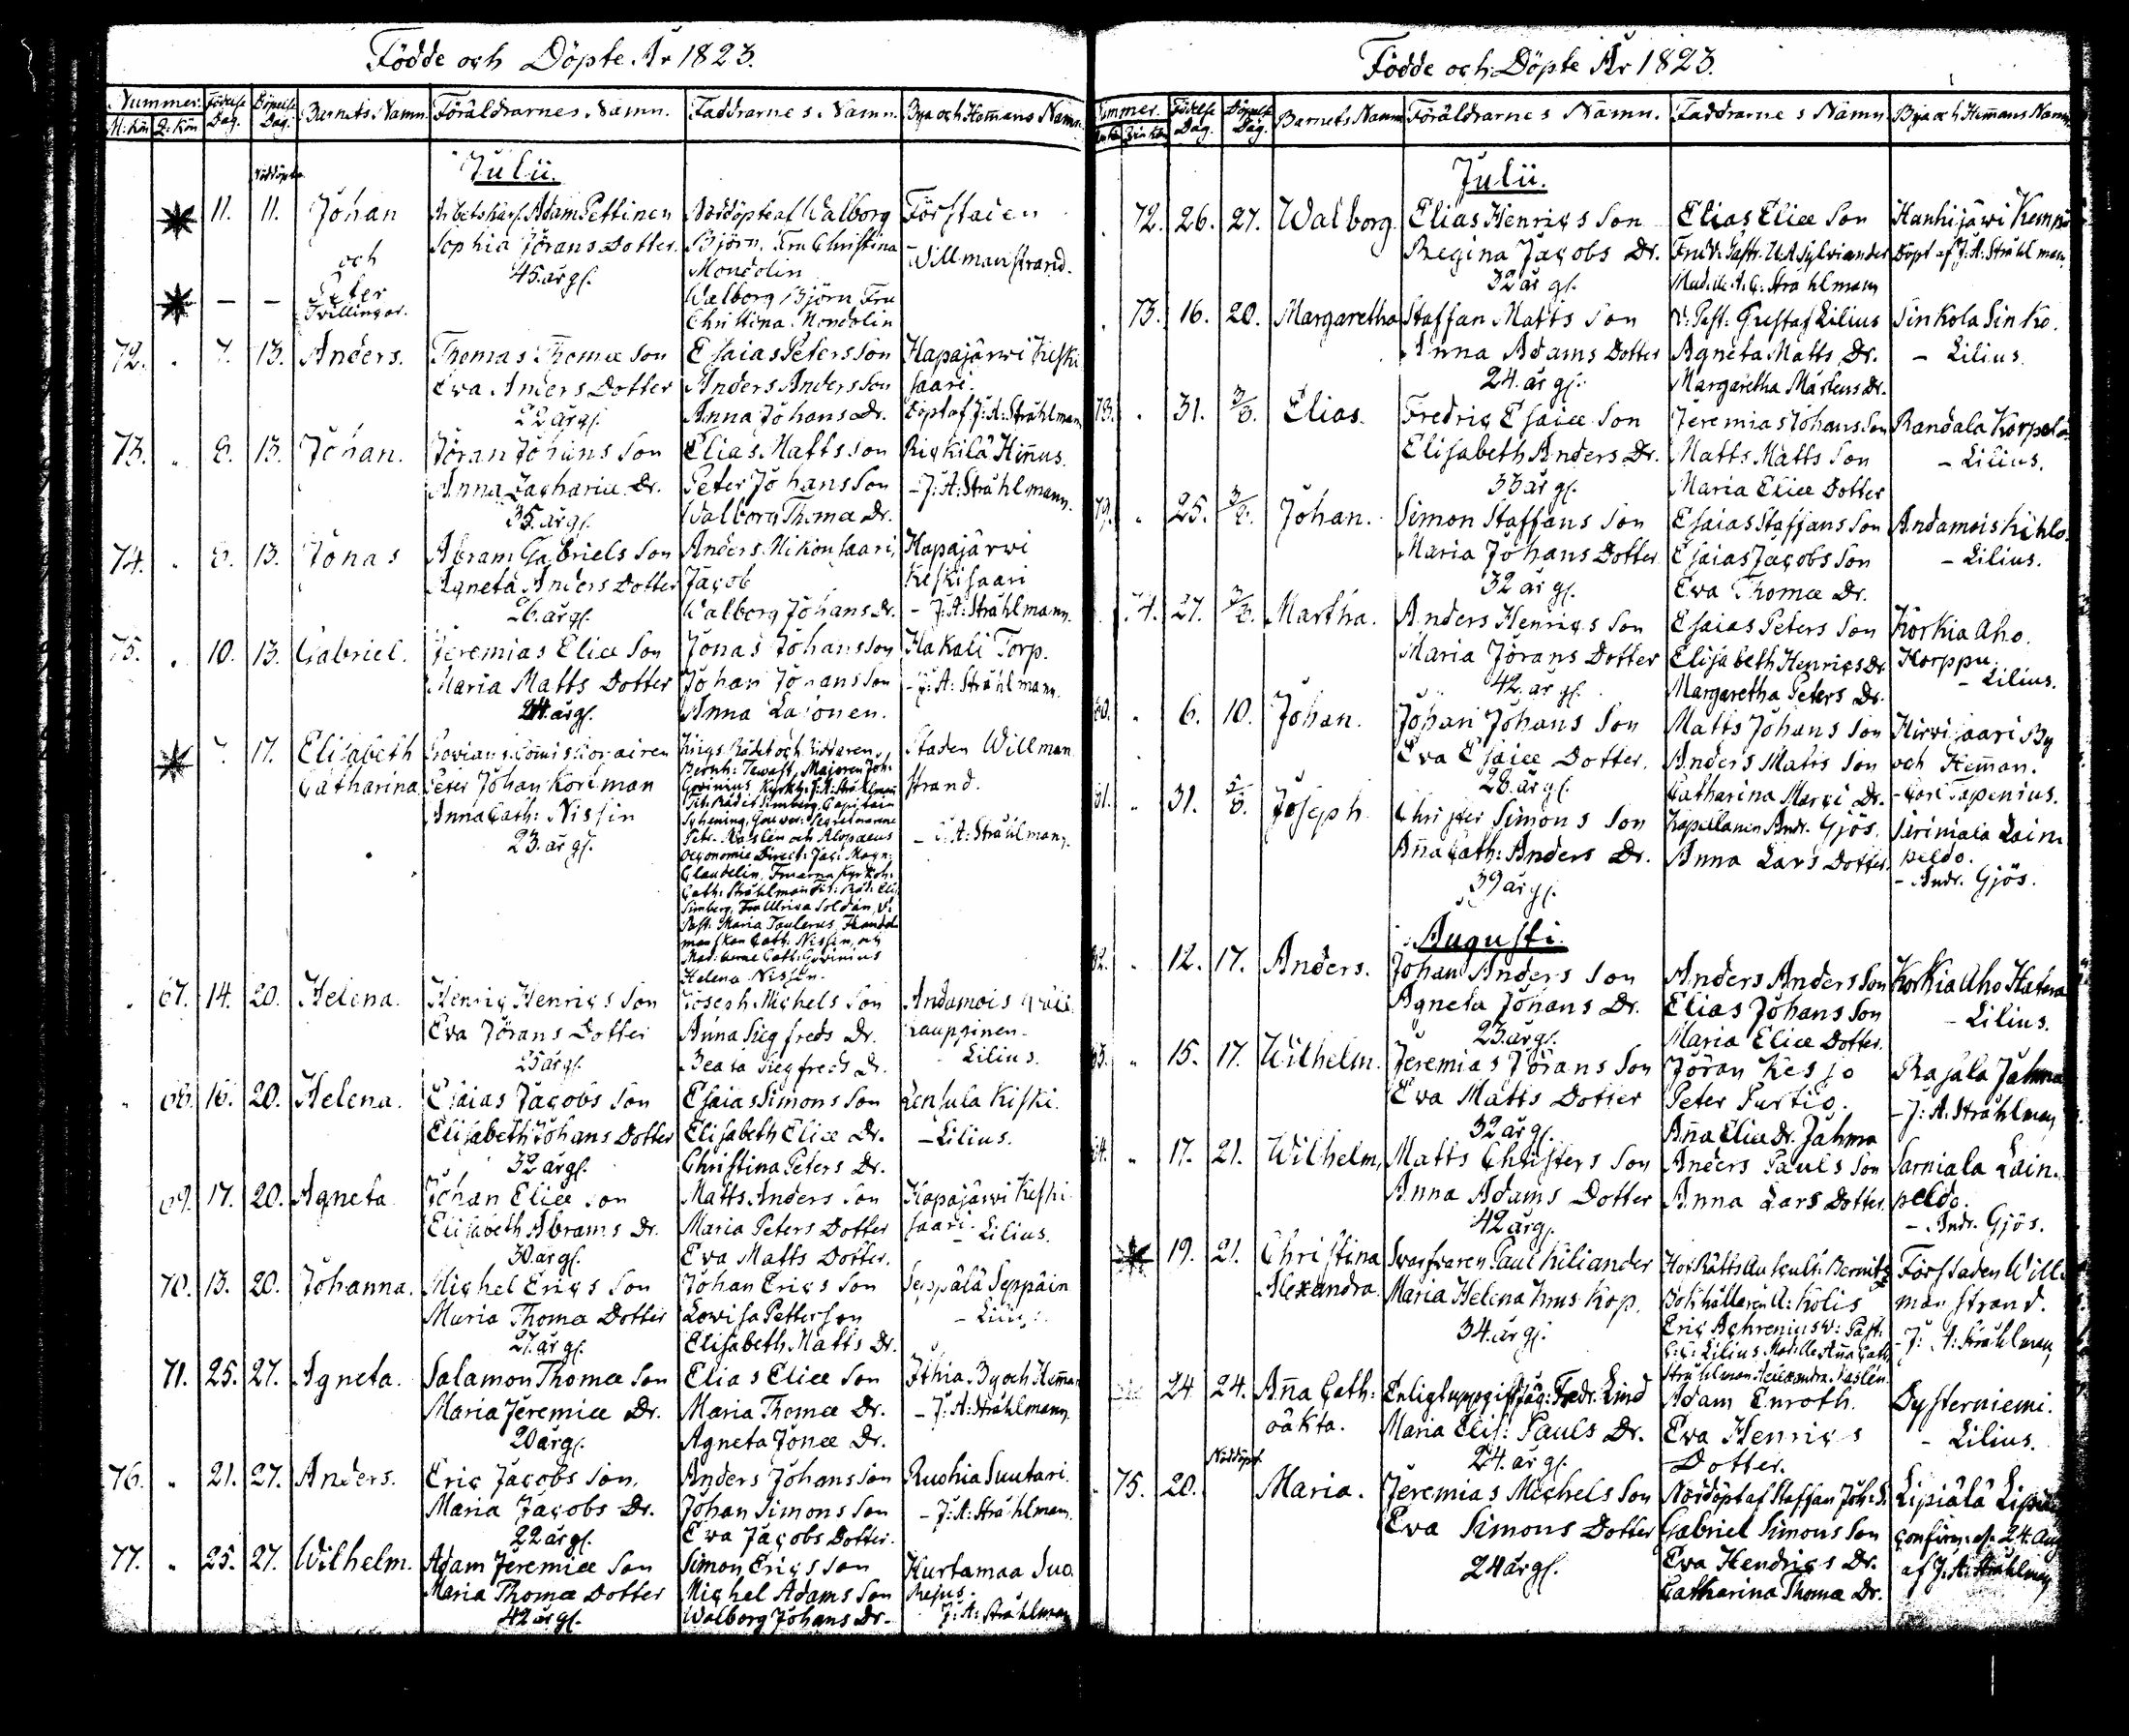 Födde och Döpte År 1823.
Nummer. Födelse Dag. Döpelse Dag. Barnets Namn Föräldrarnes Namn. Faddrarnes Namn. Bya och Hem̄ans Namn.
M: Kön Q: Kön
Julii.
Nöddöpte
11. 11. Johan Arbetskarl. Adam Pettinen Nöddöpte af Walborg Förstaden
Sophia Jörans Dotter. Björn. Fru Christina Willmanstrand.
och 45. år gl. Mondolin
Peter Walborg Björn Fru
Tvillingar. Christina Mondolin
72. 7. 13. Anders. Thomas Thomæ Son Esaias Peters Son Hapajärwi Keski
Ewa Anders Dotter Anders Anders Son saari.
22 år gl. Anna Johans Dr. Döpt af J: A: Stråhlman
73. 8. 13. Johan. Jöran Johans Son Elias Matts Son Rickilä Hin̄us.
Anna Zachariæ Dr. Peter Johans Son - J: A: Stråhlmann.
35. år gl. Walborg Thomæ Dr.
74. 8. 13. Jonas Abram Gabriels Son Anders Nikonsaari, Hapajärwi
Agneta Anders Dotter Jacob Keskisaari
26. år gl. Walborg Johans Dr. - J: A: Stråhlmann.
75. 10. 13. Gabriel. Jeremias Eliæ Son Jonas Johans Son Hakali Torp.
Maria Matts Dotter Johan Johans Son - J: A: Stråhlmann.
24. år gl. Anna Lajonen.
7. 17. Elisabeth Krigs Rådet och Riddaren Staden Willman
Catharina Peter Johan Korsman Bernh: Tawast, Majoren Joh: strand.
Anna Cath: Nissin Kyrkh: J: A: Stråhlman
23. år gl. - J: A: Stråhlmann.
Helena Nissin.
67. 14. 20. Helena. Henric Henrics Son Joseph Michels Son Andamois
Eva Jörans Dotter Anna Siegfreds Dr. Laupginen.
25 år gl. Beata Siegfreds Dr. - Lilius.
68. 16. 20. Helena. Esaias Jacobs Son Esaias Simons Son Lensula Kiski.
Elisabeth Johans Dotter Elisabeth Eliæ Dr. - Lilius.
32 år gl. Christina Peters Dr.
69. 17. 20. Agneta Johan Eliæ Son Matts Anders Son Hapajärwi Keski
Elisabeth Abrams Dr. Maria Peters Dotter saari.
30 år gl. Eva Matts Dotter. - Lilius.
70. 13. 20. Johanna. Michel Erics Son Johan Erics Son Seppälä Seppäin
Maria Thomæ Dotter Lowisa Petterson - Lilius.
27. år gl. Elisabeth Matts Dr.
71. 25. 27. Agneta. Salamon Thomæ Son Elias Eliæ Son Ithia By och Hem̄an
Maria Jeremiæ Dr. Maria Thomæ Dr. - J: A: Stråhlmann.
20 år gl. Agneta Jonæ Dr.
76. 21. 27. Anders. Eric Jacobs Son, Anders Johans Son Ruohia Suutari.
Maria Jacobs Dr. Johan Simons Son - J: A: Stråhlman.
22 år gl. Ewa Jacobs Dotter.
77. 25. 27. Wilhelm. Adam Jeremiæ Son Simon Erics Son Hurtamaa Suo.
Maria Thomæ Dotter Michel Adams Son
42 år gl. Walborg Johans Dr. J: A: Stråhlman
Födde och Döpte År 1823.
Nummer. Födelse Dag. Döpelse Dag. Barnets Namn Föräldrarnes Namn. Faddrarnes Namn Bya och Hem̄ans Namn.
Julii.
72. 26. 27. Walborg. Elias Henrics Son Elias Eliæ Son Hanhijärwi Kemp
Regina Jacobs Dr. Fru V: Past: Sylviander Döpt af J: A: Stråhlman,
32 år gl. Mad:lle A: C: Stråhlmann
73. 16. 20. Margaretha Staffan Matts Son V: Past: Gustaf Lilius Sinkola Sinko.
Anna Adams Dotter Agneta Matts Dr. - Lilius.
24. år gl. Margaretha Mårtens Dr.
78. 31. 3/8. Elias. Fredric Esaiæ Son Jeremias Johans Son Randala Korpela
Elisabeth Anders Dr. Matts Matts Son - Lilius.
33 år gl. Maria Eliæ Dotter
79. 25. 3/8. Johan. Simon Staffans Son Esaias Staffans Son Andamois Kihlo.
Maria Johans Dotter Esaias Jacobs Son - Lilius.
32 år gl. Eva Thomæ Dr.
74. 27. 3/8. Martha. Anders Henrics Son Esaias Peters Son Korkia Aho.
Maria Jörans Dotter Elisabeth Henrics Dr. Korppu.
42. år gl. Margaretha Peters Dr. - Lilius.
80. 6. 10. Johan. Johan Johans Son Matts Johans Son Hirwisaari By
Eva Esaiæ Dotter. Anders Matts Son och Hem̄an.
28. år gl. Catharina Marci Dr. - Carl Tapenius.
81. 31. Joseph. Christer Simons Son Kapellanen Andr. Gjös. Siriniala Lain.
An̄a Cath: Anders Dr. Anna Lars Dotter. peldo.
39 år gl. - Andr. Gjös.
Augusti.
82. 12. 17. Anders. Johan Anders Son Anders Anders Son Korkia Aho
Agneta Johans Dr. Elias Johans Son - Lilius.
23 år gl. Maria Eliæ Dotter.
83. 15. 17. Wilhelm. Jeremias Jörans Son Jöran Kesjo Rajala Jahma
Eva Matts Dotter Peter Purtio. - J: A: Stråhlman
32 år gl. An̄a Eliæ Dr. Jahma
84. 17. 21. Wilhelm, Matts Christers Son Anders Pauls Son Sarniala Lain.
Anna Adams Dotter Anna Lars Dotter. peldo.
42 år gl. - Andr. Gjös.
19. 21. Christina Swarfvaren Paul Kiliander Förstaden Will
Alexandra. Maria Helena Bokhållaren A: Kolis man strand.
34. år gl. - J: A: Stråhlman,
24 24. An̄a Cath: Enligt uppgift Fredr. Lind Adam Enroth. Dysterniemi.
oäkta. Maria Elis: Pauls Dr. Eva Henrics - Lilius.
24. år gl. Dotter.
Nöddöpt.
75. 20. Maria. Jeremias Michels Son Nöddöpt af Staffan Joh: S. Lipiälä
Eva Simons Dotter Gabriel Simons Son confirm: af 24. Aug
24 år gl. Eva Hendrics Dr. af J: A: Stråhlman
Catharina Thomæ Dr.